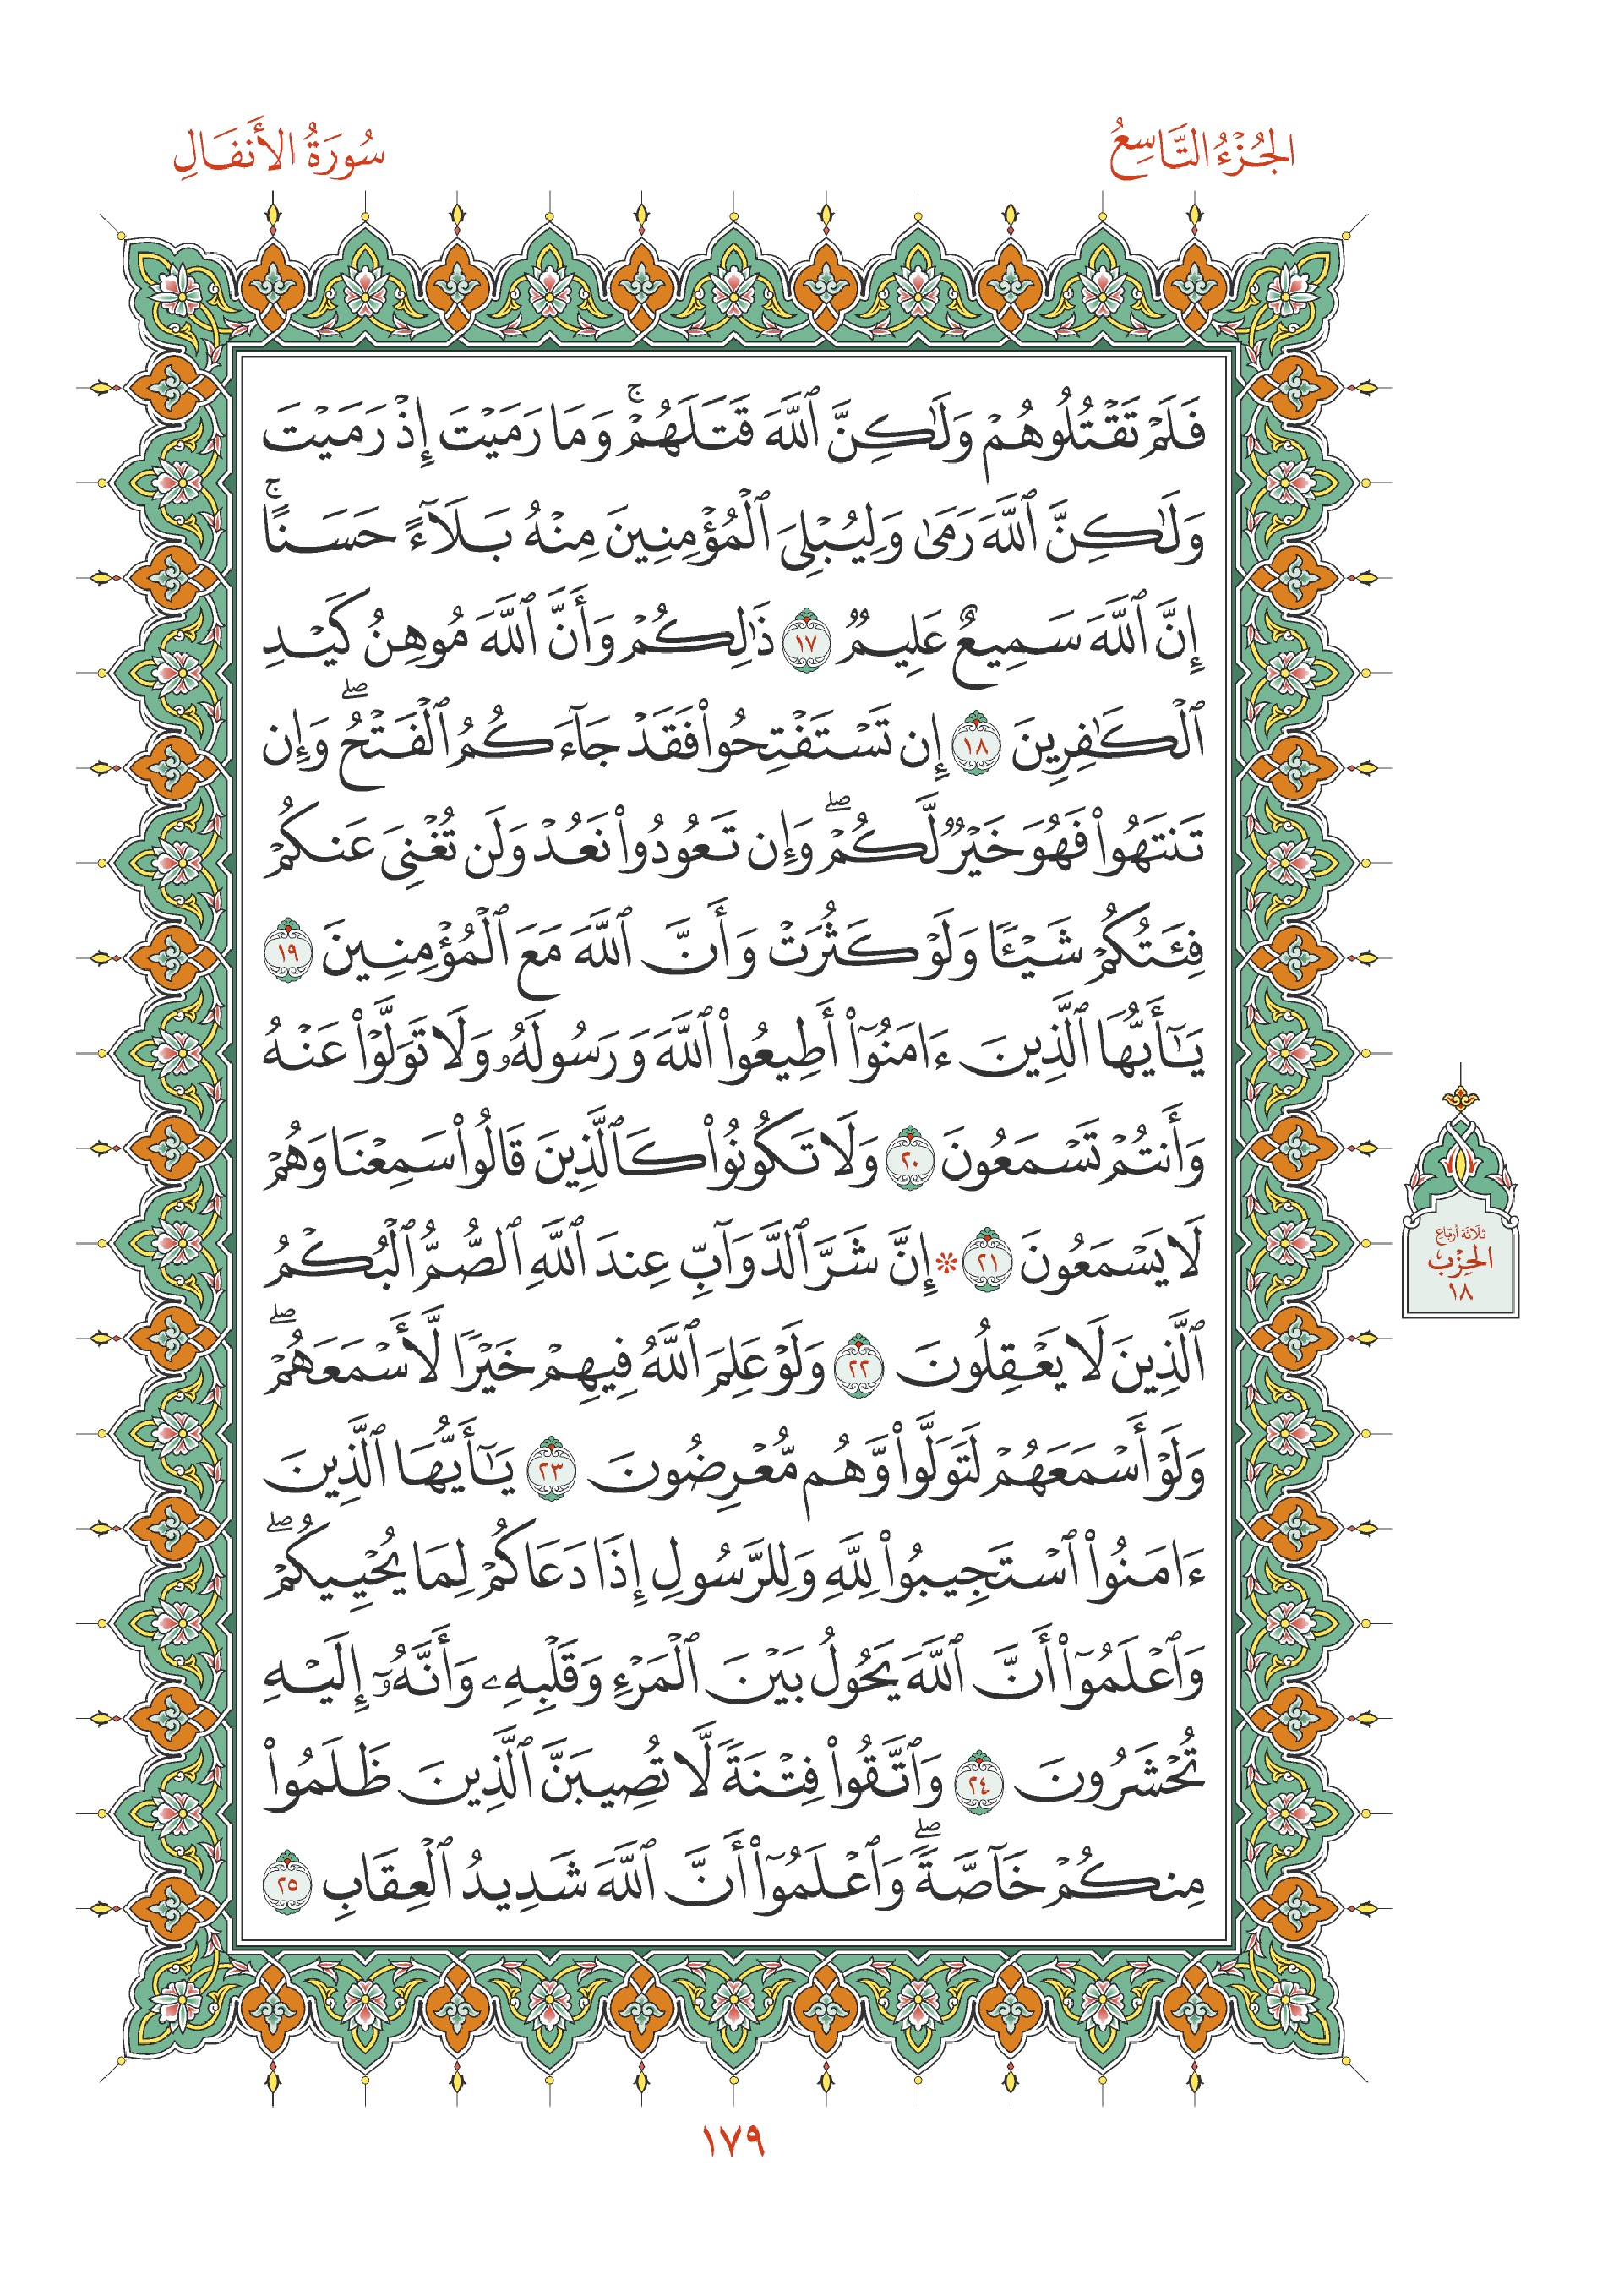 الجُزْءُ التَّاسِعُ
سُورَةُ الأَنفَالِ
فَلَمْ تَقْتُلُوهُمْ وَلَٰكِنَّ ٱللَّهَ قَتَلَهُمْۚ وَمَا رَمَيْتَ إِذْ رَمَيْتَ
وَلَٰكِنَّ ٱللَّهَ رَمَىٰ وَلِيُبْلِىَ ٱلْمُؤْمِنِينَ مِنْهُ بَلَآءً حَسَنًاۚ
إِنَّ ٱللَّهَ سَمِيعٌ عَلِيمٌ ١٧ ذَٰلِكُمْ وَأَنَّ ٱللَّهَ مُوهِنُ كَيْدِ
ٱلْكَٰفِرِينَ ١٨ إِن تَسْتَفْتِحُوا۟ فَقَدْ جَآءَكُمُ ٱلْفَتْحُۖ وَإِن
تَنتَهُوا۟ فَهُوَ خَيْرٌ لَّكُمْۖ وَإِن تَعُودُوا۟ نَعُدْ وَلَن تُغْنِىَ عَنكُمْ
فِئَتُكُمْ شَيْـًٔا وَلَوْ كَثُرَتْ وَأَنَّ ٱللَّهَ مَعَ ٱلْمُؤْمِنِينَ ١٩
يَٰٓأَيُّهَا ٱلَّذِينَ ءَامَنُوٓا۟ أَطِيعُوا۟ ٱللَّهَ وَرَسُولَهُۥ وَلَا تَوَلَّوْا۟ عَنْهُ
وَأَنتُمْ تَسْمَعُونَ ٢٠ وَلَا تَكُونُوا۟ كَٱلَّذِينَ قَالُوا۟ سَمِعْنَا وَهُمْ
لَا يَسْمَعُونَ ٢١ ۞ إِنَّ شَرَّ ٱلدَّوَآبِّ عِندَ ٱللَّهِ ٱلصُّمُّ ٱلْبُكْمُ
ٱلَّذِينَ لَا يَعْقِلُونَ ٢٢ وَلَوْ عَلِمَ ٱللَّهُ فِيهِمْ خَيْرًا لَّأَسْمَعَهُمْۖ
وَلَوْ أَسْمَعَهُمْ لَتَوَلَّوا۟ وَّهُم مُّعْرِضُونَ ٢٣ يَٰٓأَيُّهَا ٱلَّذِينَ
ءَامَنُوا۟ ٱسْتَجِيبُوا۟ لِلَّهِ وَلِلرَّسُولِ إِذَا دَعَاكُمْ لِمَا يُحْيِيكُمْۖ
وَٱعْلَمُوٓا۟ أَنَّ ٱللَّهَ يَحُولُ بَيْنَ ٱلْمَرْءِ وَقَلْبِهِۦ وَأَنَّهُۥٓ إِلَيْهِ
تُحْشَرُونَ ٢٤ وَٱتَّقُوا۟ فِتْنَةً لَّا تُصِيبَنَّ ٱلَّذِينَ ظَلَمُوا۟
مِنكُمْ خَآصَّةًۖ وَٱعْلَمُوٓا۟ أَنَّ ٱللَّهَ شَدِيدُ ٱلْعِقَابِ ٢٥
ثلاثة أرباع
الحِزْب
١٨
١٧٩